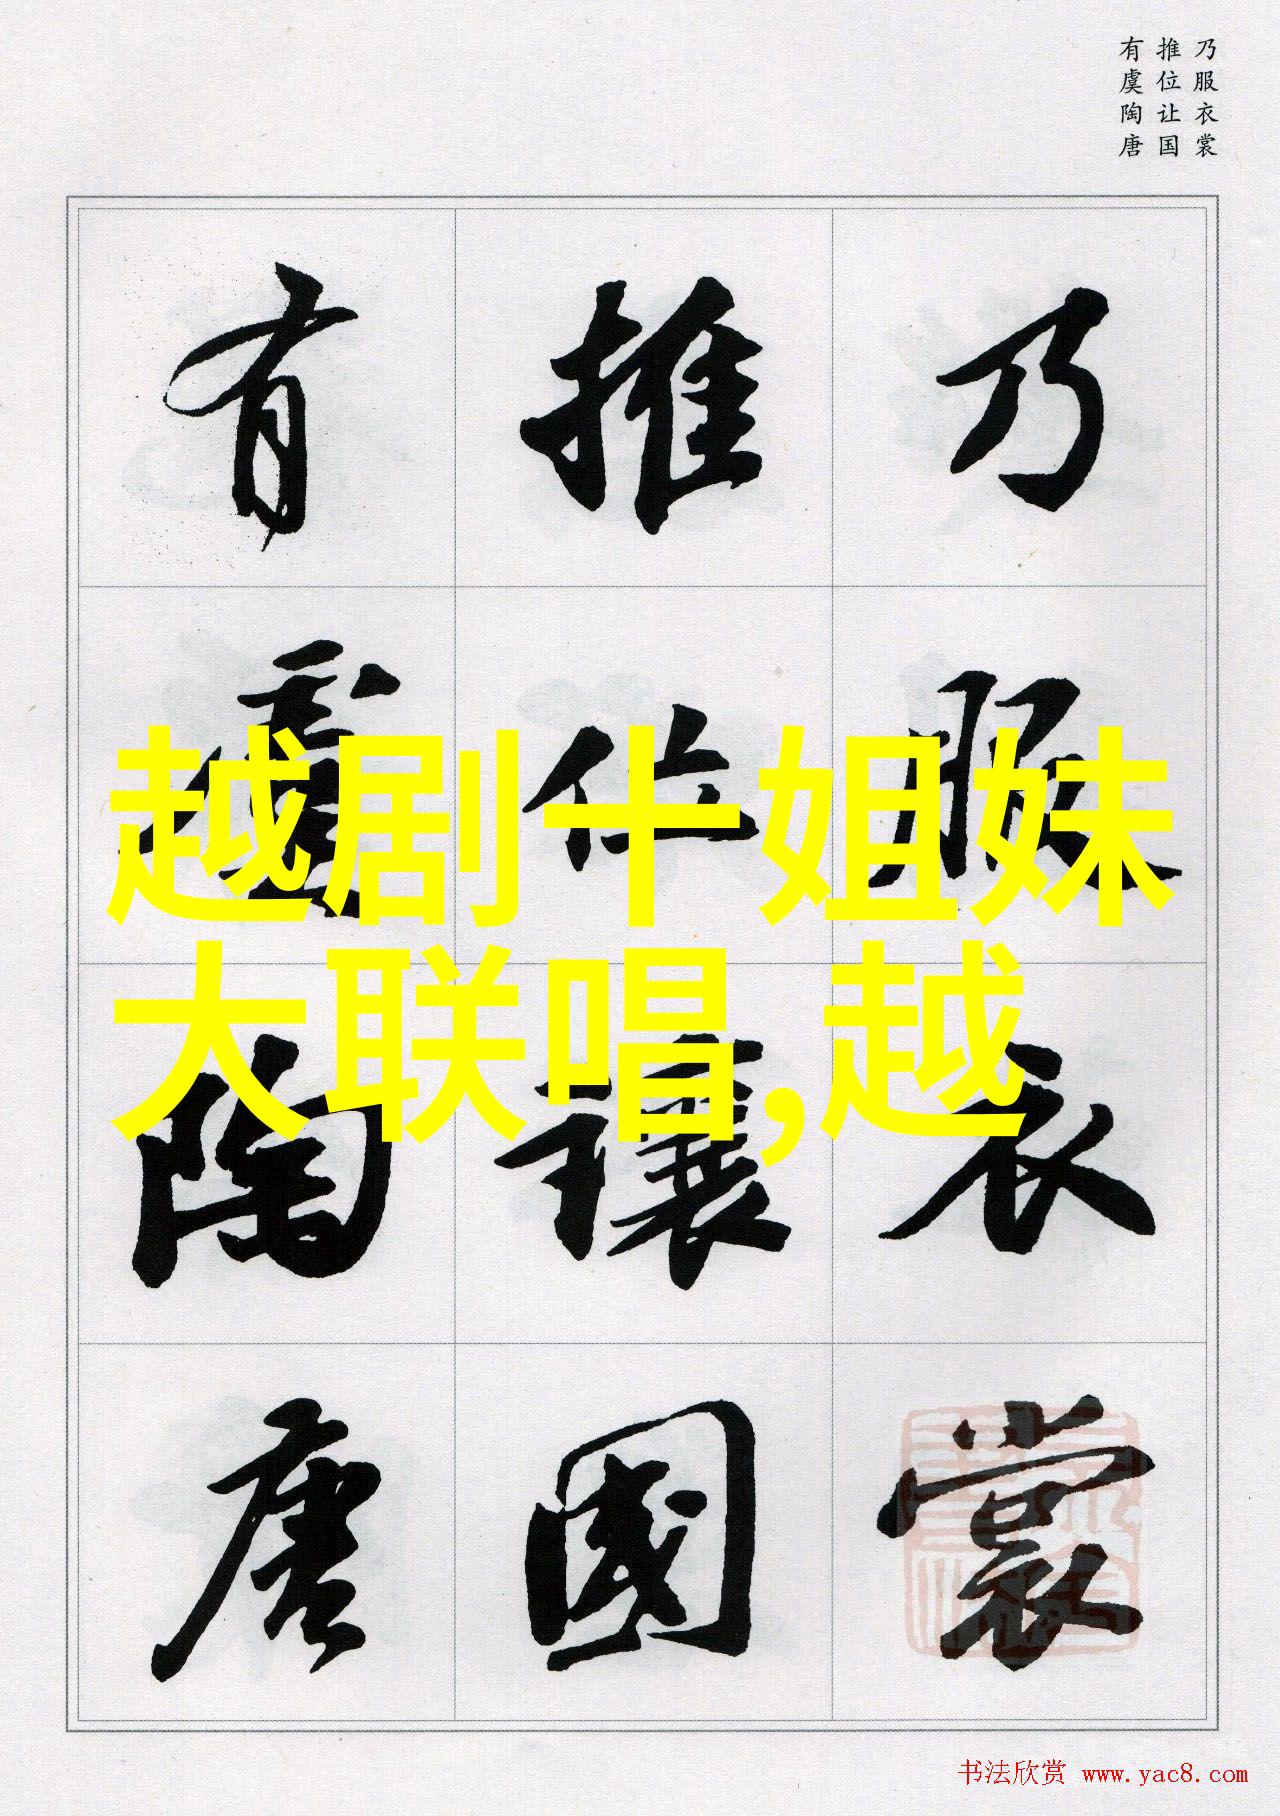 乃服衣裳
推位让国
有虞陶唐
乃服衣裳
推位讓國
有虞陶唐
越剧十姐妹
大联唱,越
书法欣赏 www.yac8.com